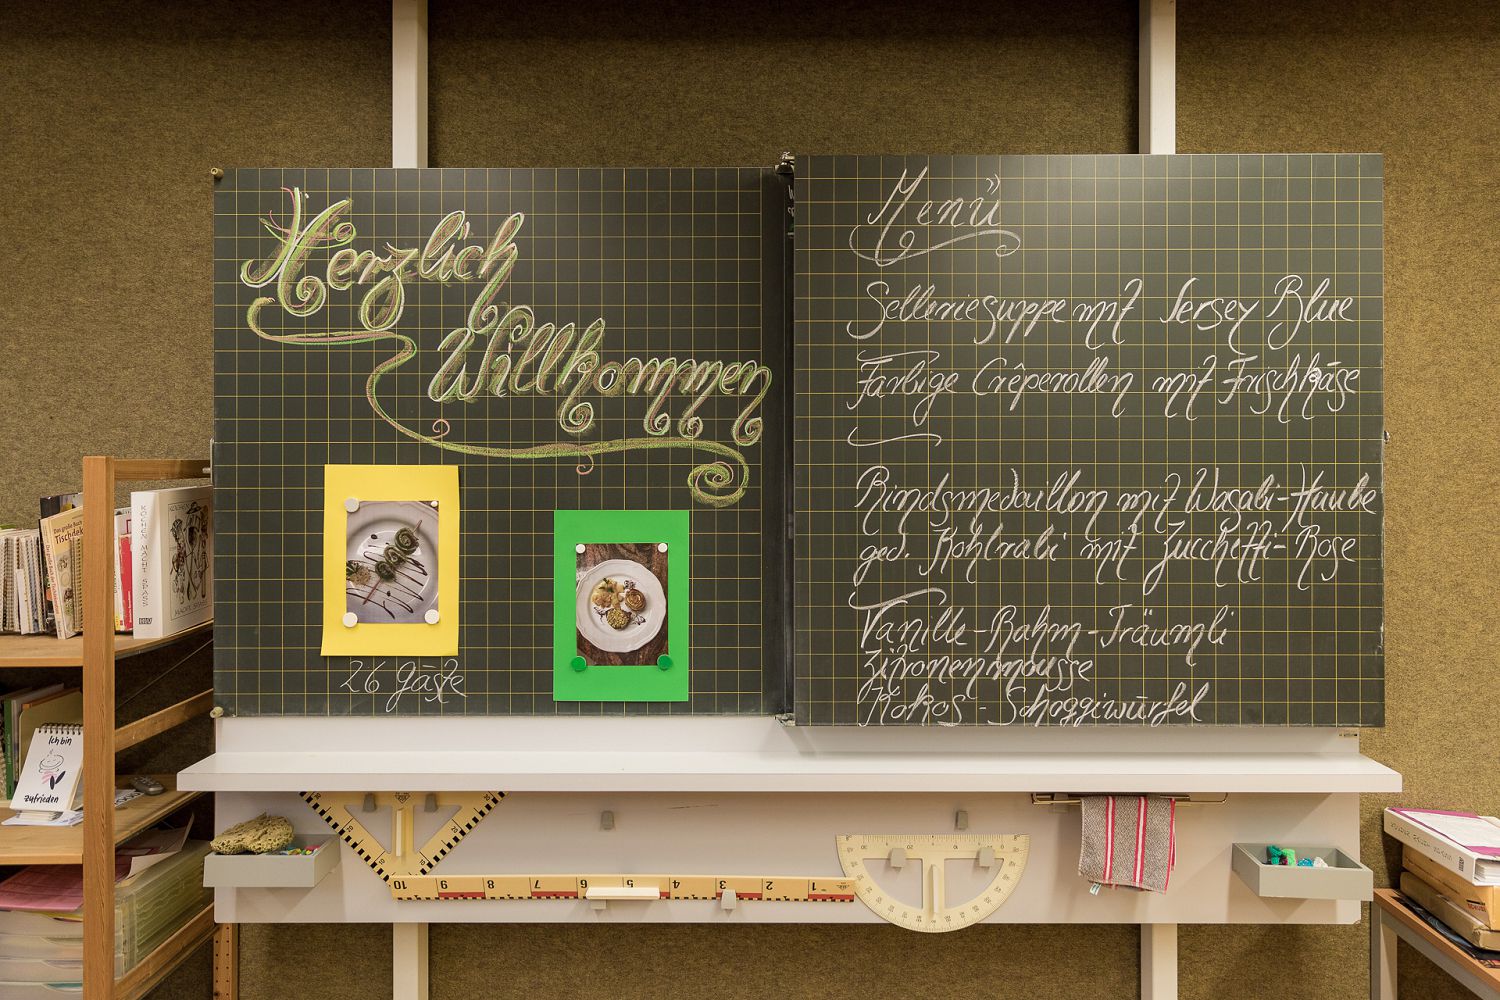 Herzlich
Willkommen
26 Gäste
Menü
Selleriesuppe mit Jersey Blue
Farbige Crêperollen mit Frischkäse
Rindsmedaillon mit Wasabi-Haube
ged. Kohlrabi mit Zucchetti-Rose
Vanille-Rahm-Träumli
Zitronenmousse
Kokos-Schoggiwürfel
Das große Buch
Tischdek
KOCHEN MACHT SPASS
Ich bin
zufrieden
10 9 8 7 6 5 4 3 2 1